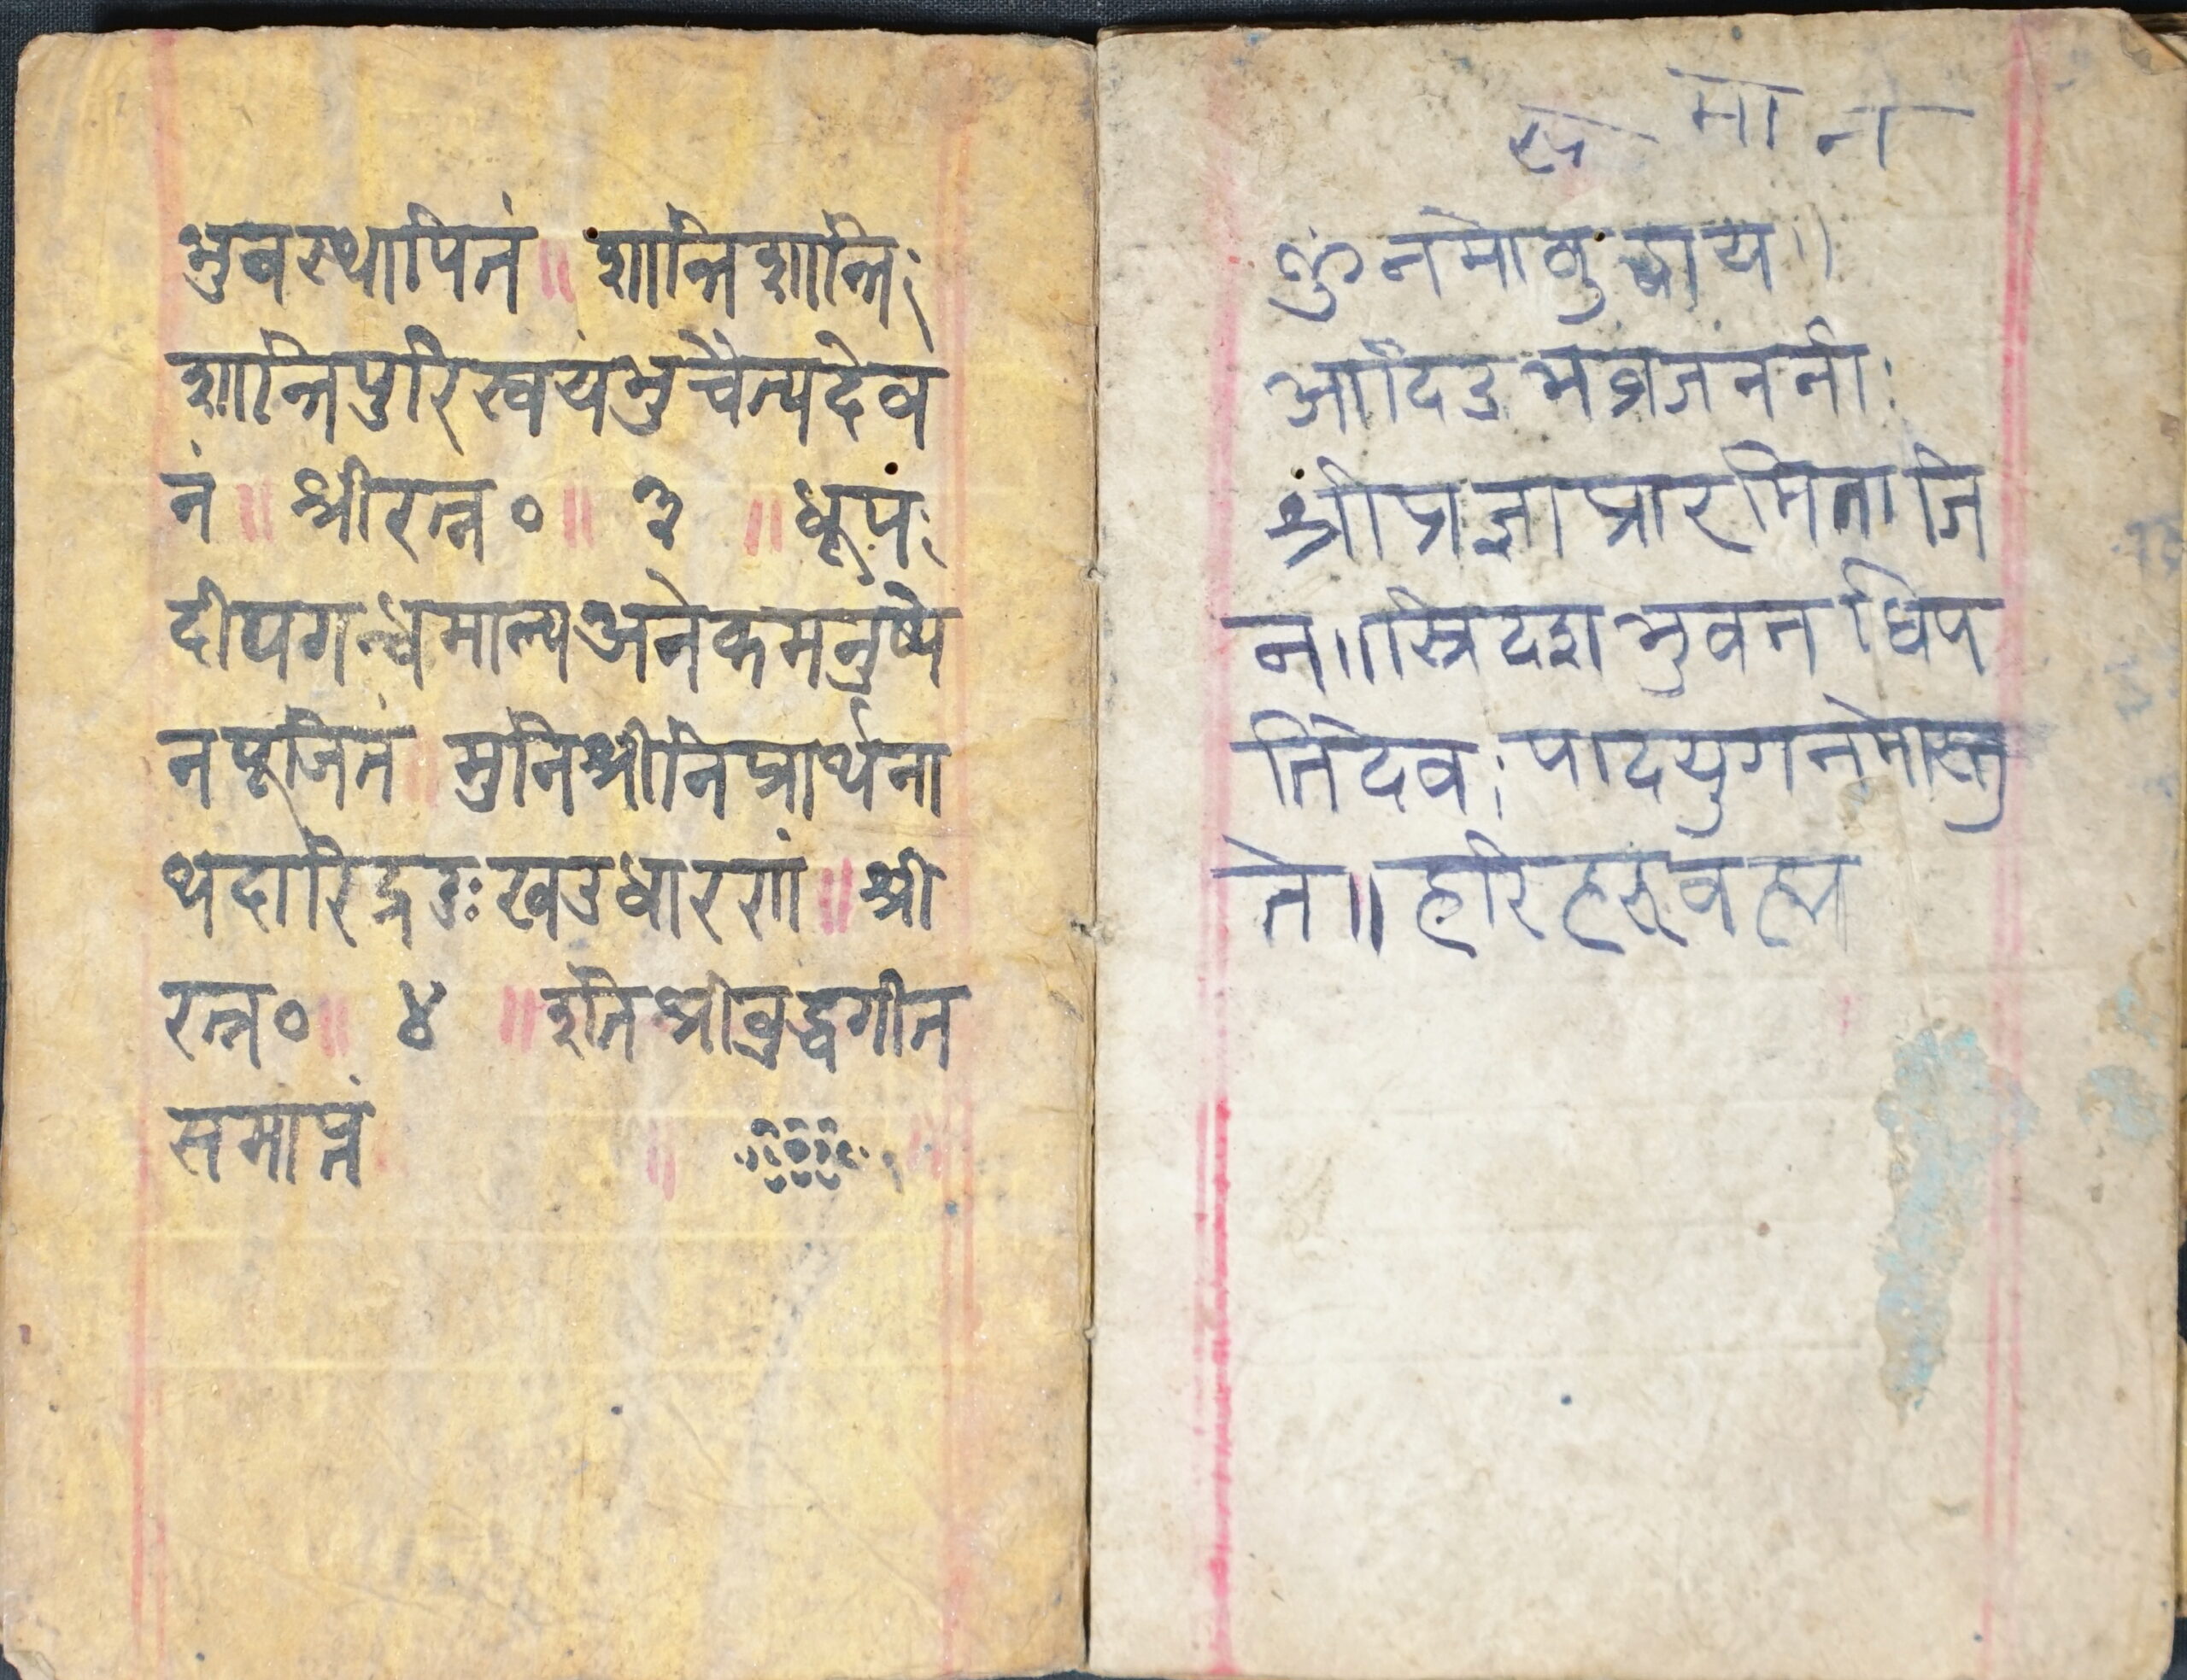 भुवस्थापितं ॥ शान्तिशान्तिः
शान्तिपुरिस्वयंभुचैत्यदेव
नं ॥ श्रीरत्न० ॥ ३ ॥ धूपंः
दीपगन्धमाल्यअनेकमनुष्ये
नपूजितं ॥ मुनिश्रीनिप्रार्थना
थदारिद्रदुःखउधारणं ॥ श्री
रत्न० ॥ ४ ॥ इतिश्रीबुद्धगीत
समाप्तं ॥
मान
ॐनमोबुद्धाय॥
आदिउभव्रजंनंनीः
श्रीप्रज्ञापारमिताजि
न॥त्रिदशभुवनधिप
तिदेवः पादयुगनमोस्तु
ते॥ हरिहरूवह्म